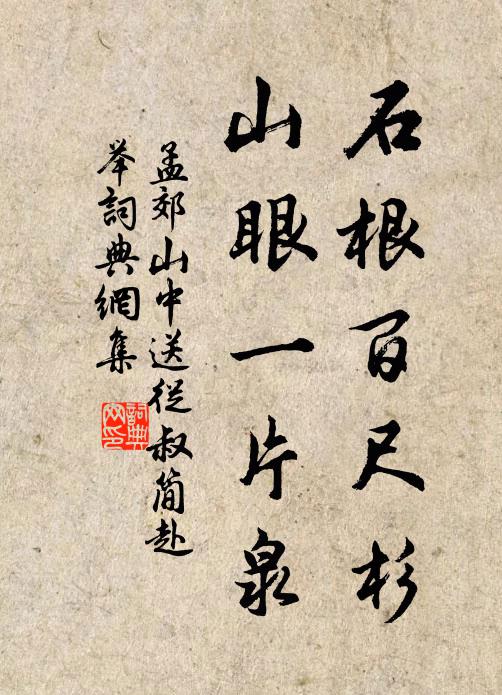 石根百尺杉
山眼一片泉
孟郊山中送從叔簡赴
举詞典網集
詞典网印